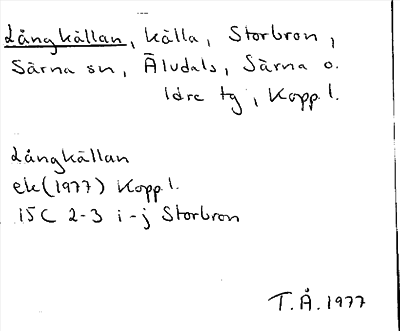 Långkällan, källa, Storbron,
Särna sn, Äludals, Särna o.
Idre tg, Kopp.l.
Långkällan
ek(1977) Kopp.l.
15C 2-3 i-j Storbron
T.Å.1977